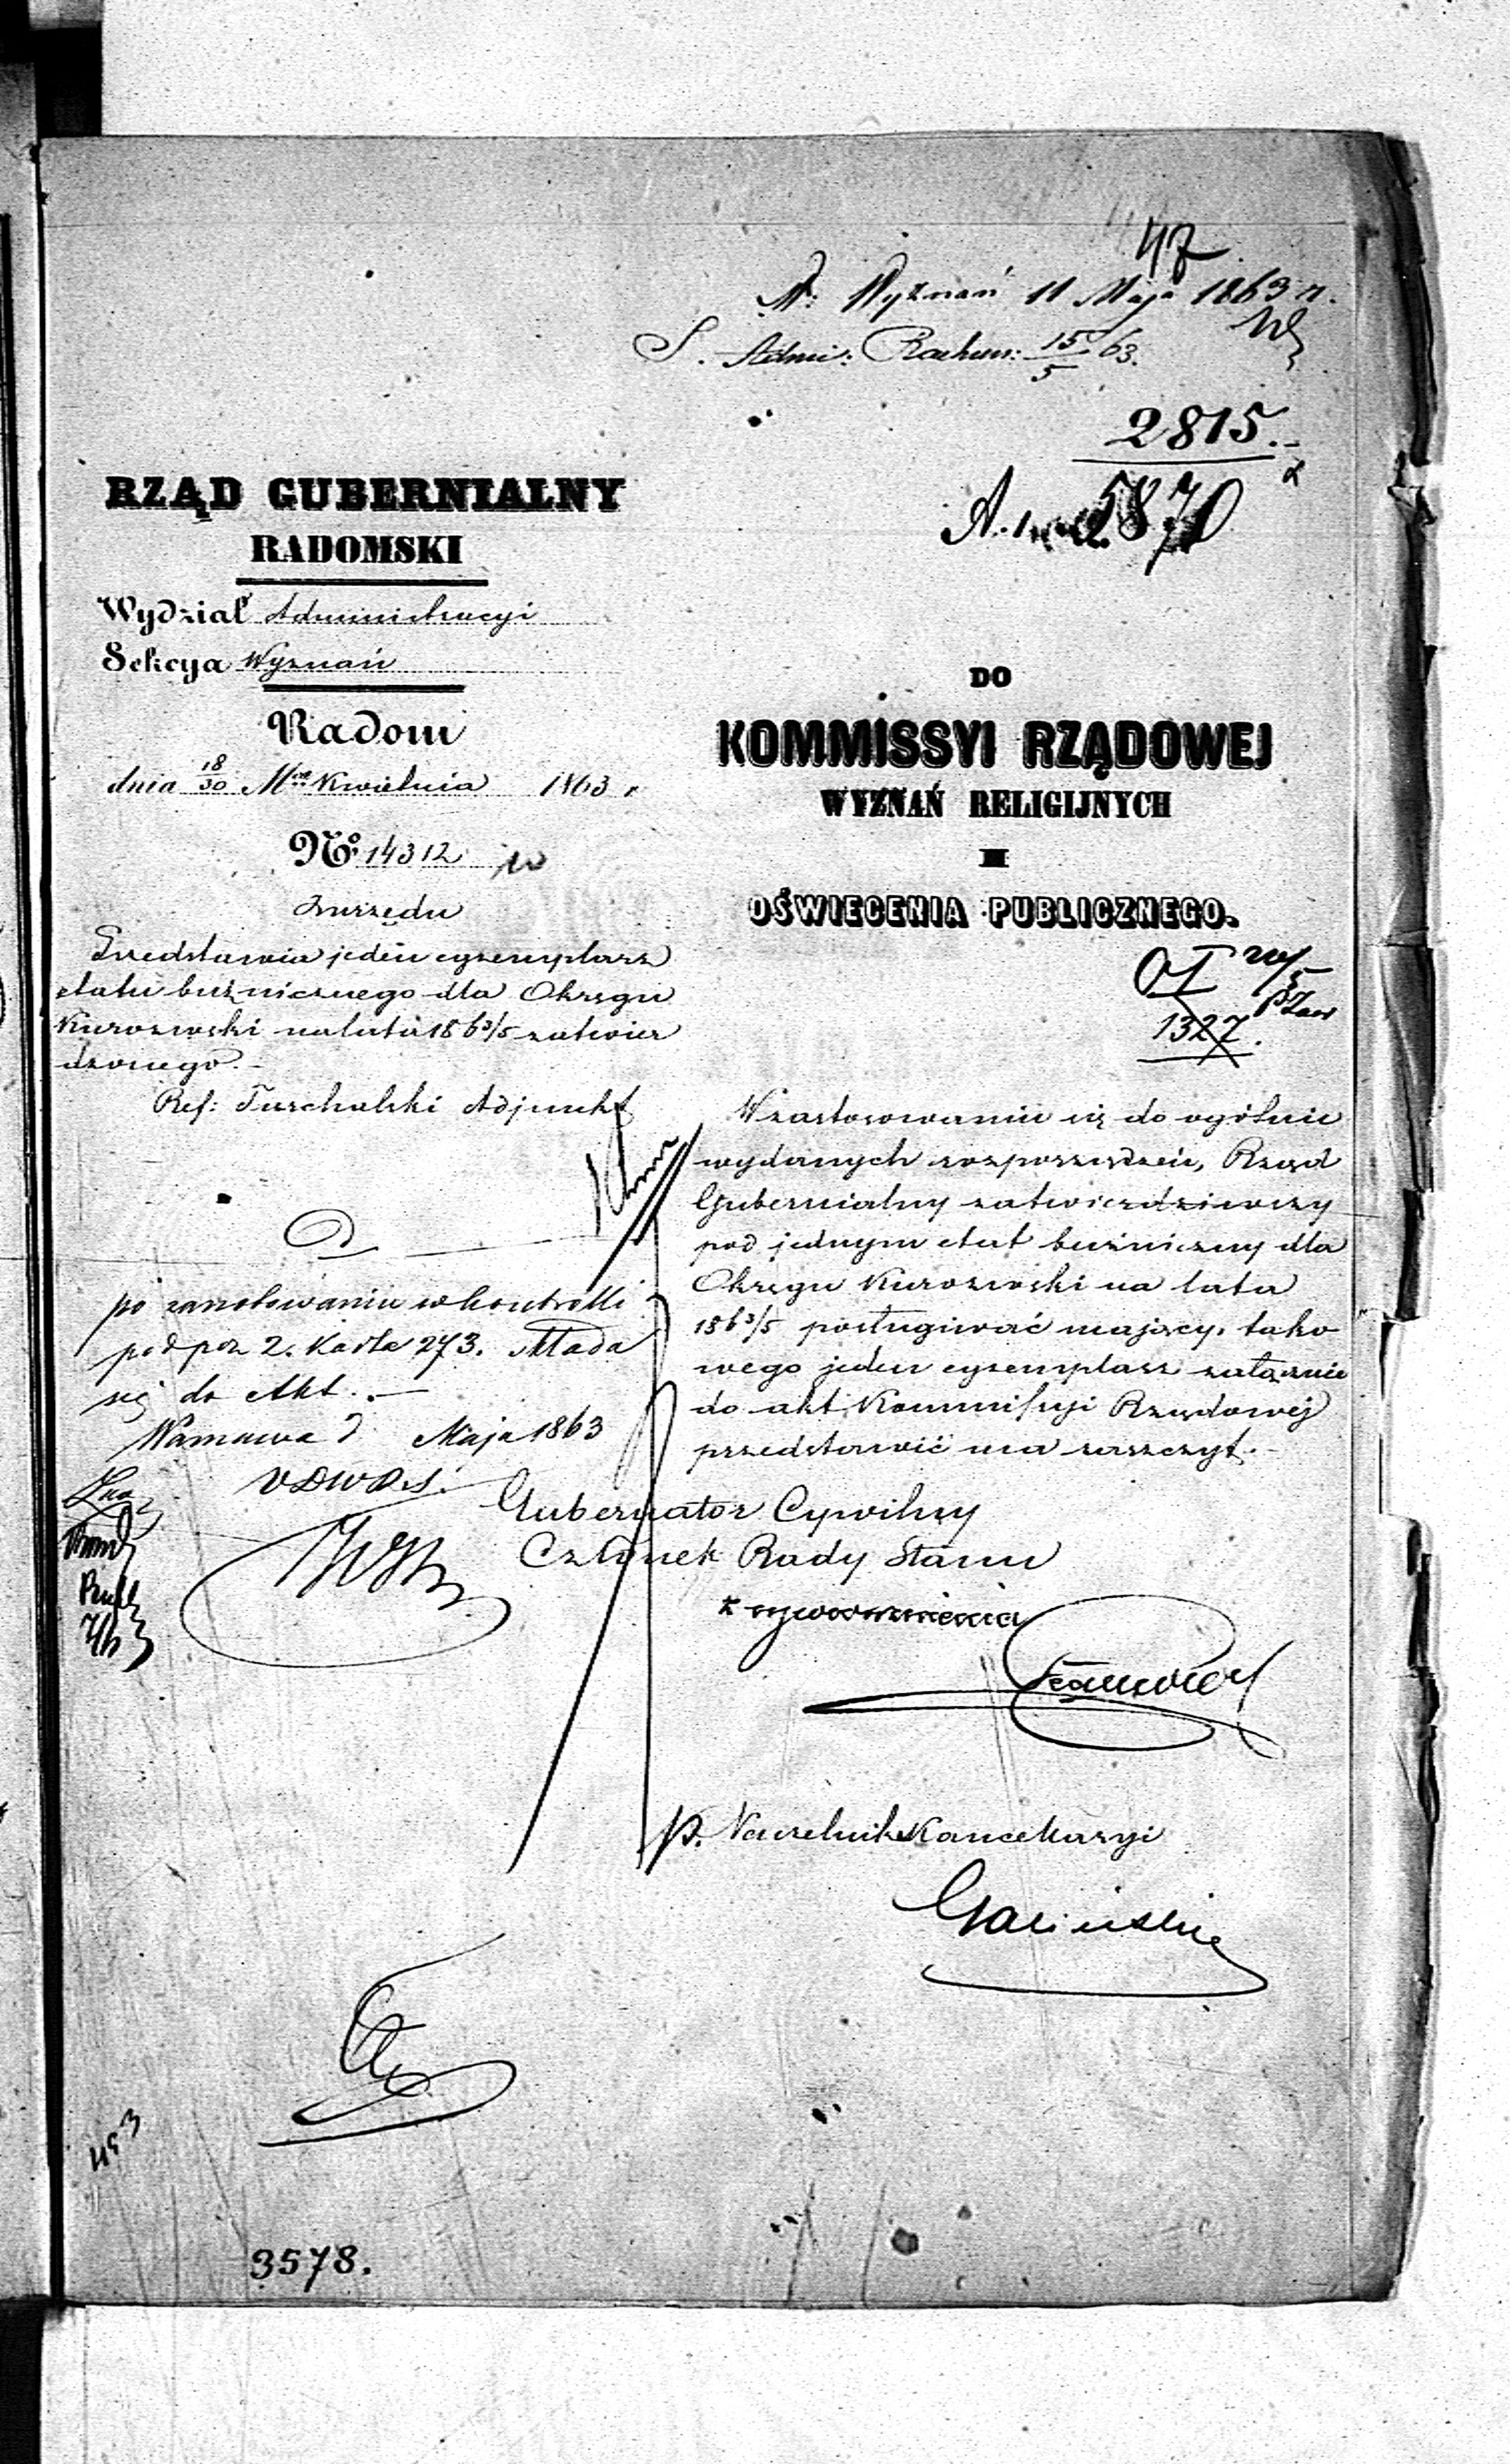 47
W: Wyznań 11 Maja 1863 r.
S. Admi: Rachun: 15/5 63.
2815.
A. 5870
RZĄD GUBERNIALNY
RADOMSKI
Wydział Administracyi
Sekcya Wyznań
Radom
dnia 18/30 Kwietnia 1863 r
No. 14312
Zurzędu
Przedstawia jeden egzemplarz
etatu bużniczego dla Okręgu
Kurozwęki na lata 186 3/5 zatwier
dzonego.-
Ref: Adjunkt
DO
KOMMISSYI RZĄDOWEJ
WYZNAŃ RELIGIJNYCH
I
OŚWIECENIA PUBLICZNEGO.
1327.
W zastosowaniu się do ogólnie
wydanych rozporządzeń, Rząd
Gubernialny zatwierdziwszy
pod jednym etat bużniczny dla
Okręgu Kurozwęki na lata
186 3/5 posługiwać mający, tako
wego jeden egzemplarz załącznie
do akt Kommissyi Rządowej
przedstawić ma zaszczyt.-
po zanotowaniu w kontrolli
pod poz 2. Karta 273. składa
się do Akt.-
Warszawa d. Maja 1863
Gubernator Cywilny
Członek Rady Stanu
p. Naczelnik Kancellaryi
453
3578.